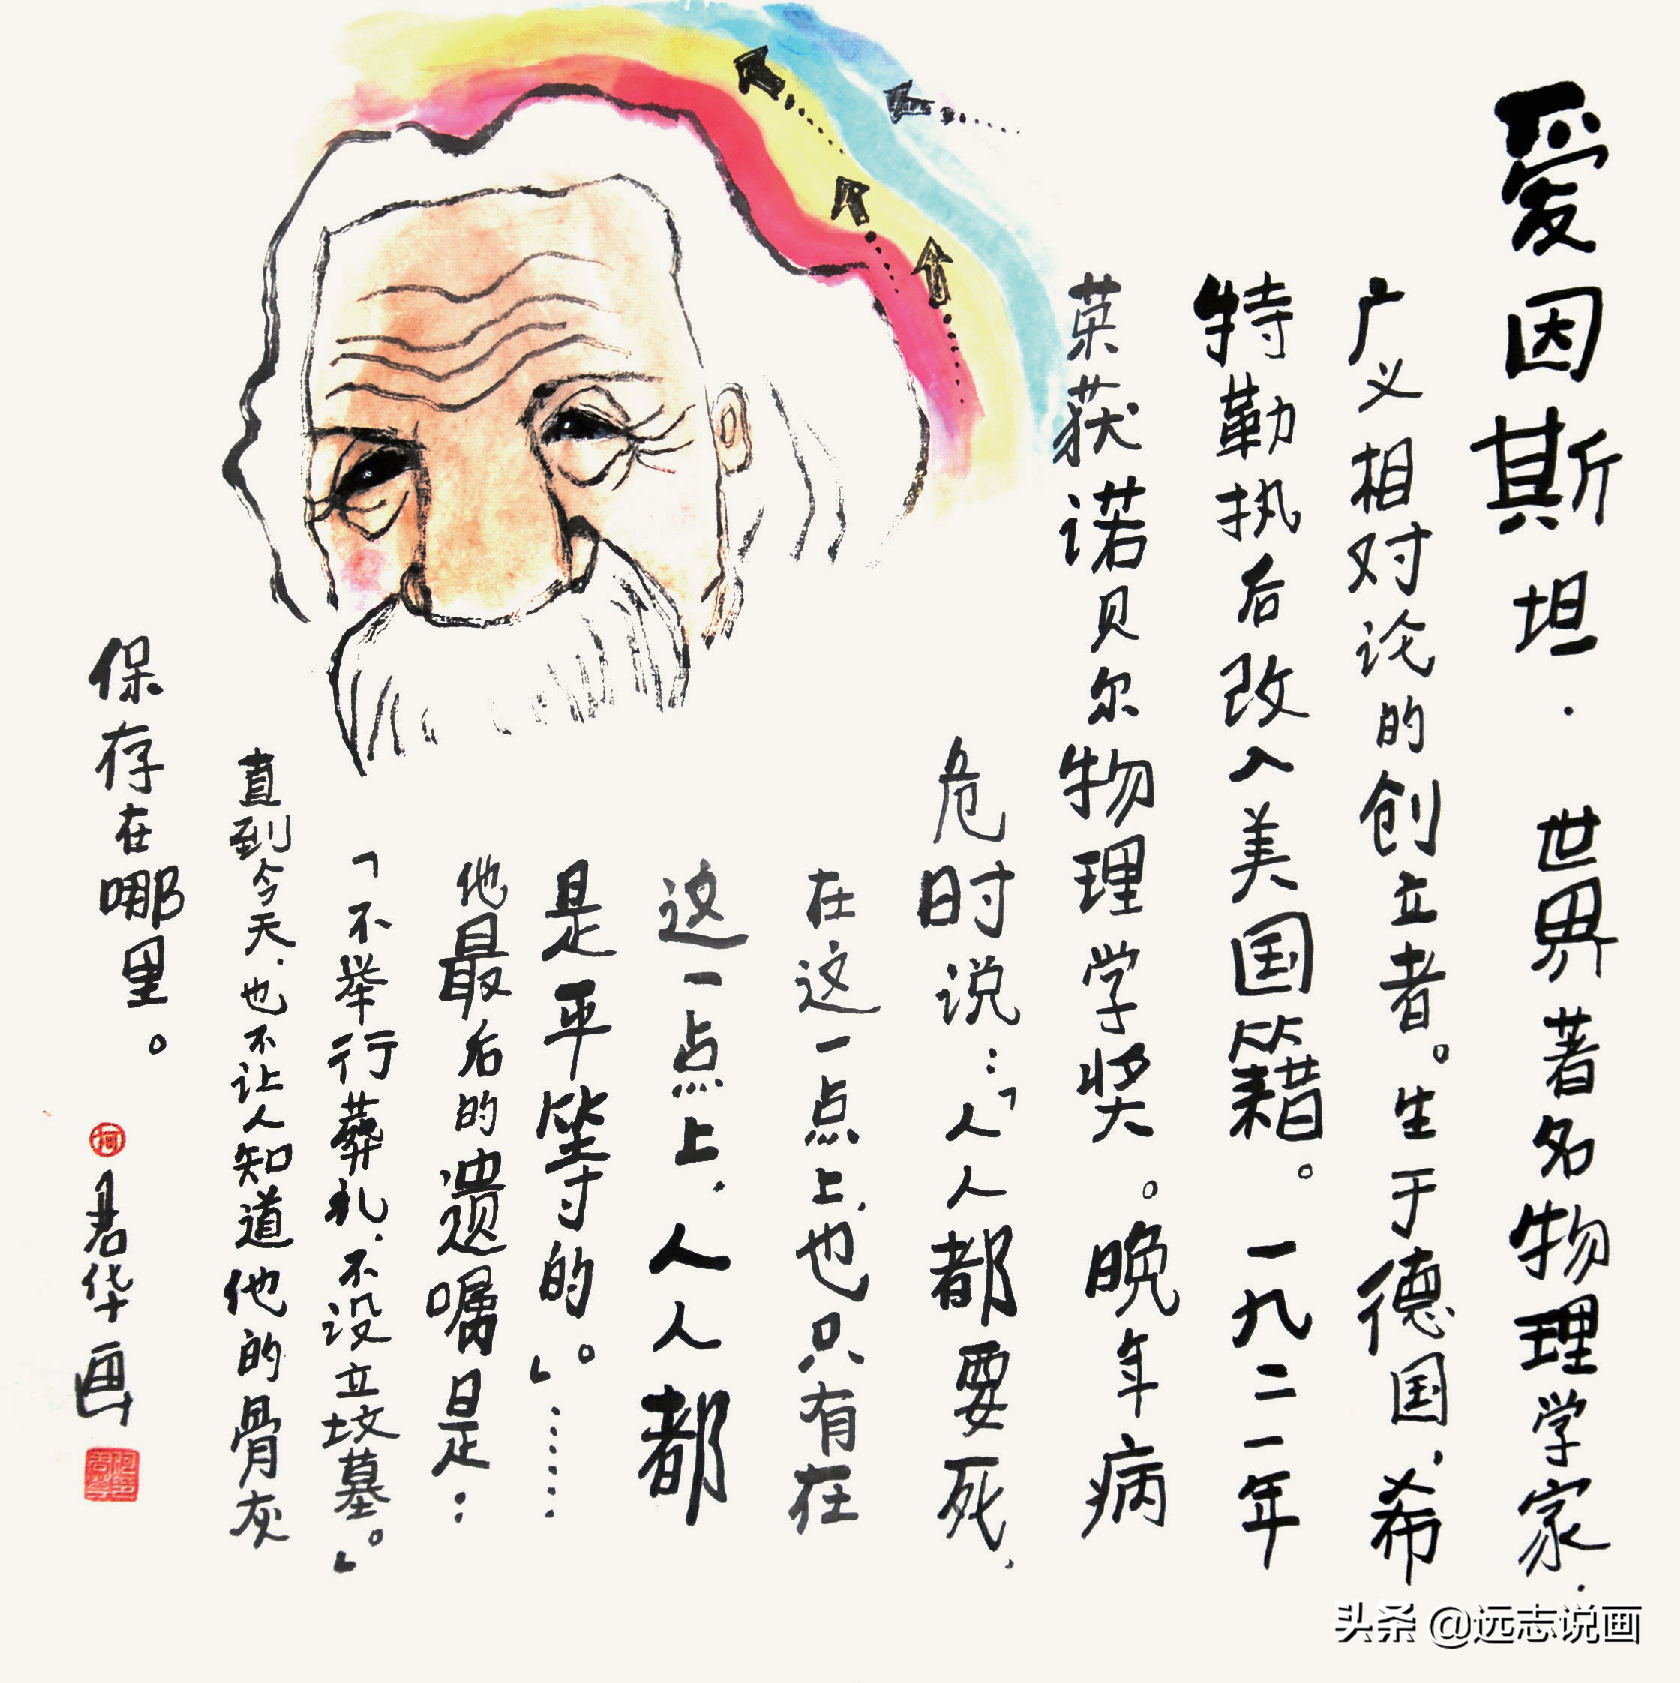 爱因斯坦·世界著名物理学家、
广义相对论的创立者。生于德国、希
特勒执后改入美国籍。一九二一年
荣获诺贝尔物理学奖。晚年病
危时说：「人人都要死、
在这一点上、也只有在
这一点上、人人都
是平等的。」……
他最后的遗嘱是：
「不举行葬礼、不设立坟墓。」
直到今天、也不让人知道他的骨灰
保存在哪里。
君华画
头条 @远志说画